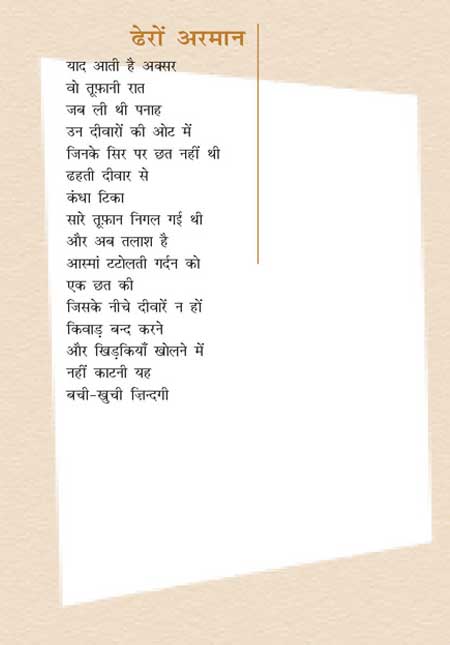 ढेरों अरमान
याद आती है अक्सर
वो तूफ़ानी रात
जब ली थी पनाह
उन दीवारों की ओट में
जिनके सिर पर छत नहीं थी
ढहती दीवार से
कंधा टिका
सारे तूफ़ान निगल गई थी
और अब तलाश है
आस्मां टटोलती गर्दन को
एक छत की
जिसके नीचे दीवारें न हों
किवाड़ बन्द करने
और खिड़कियाँ खोलने में
नहीं काटनी यह
बची-खुची ज़िन्दगी